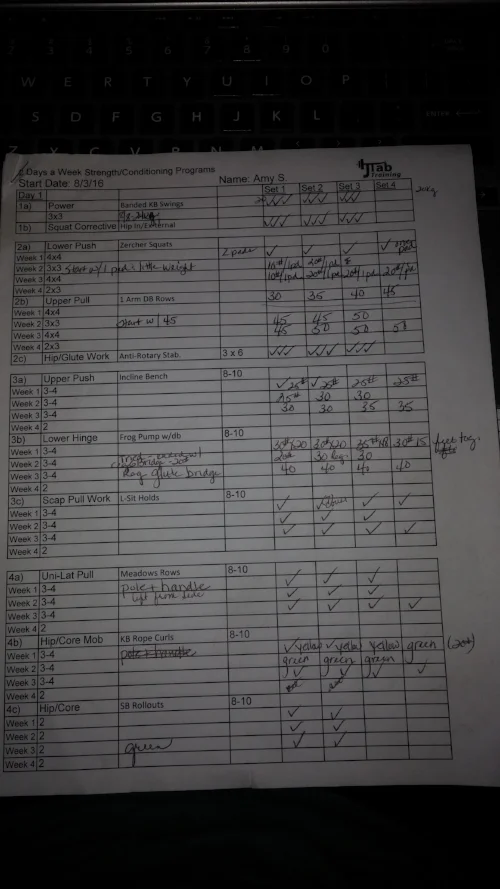 7 8 9 0
W E R T Y U I O P
S D F G H J K L
ENTER
Z X C V B N M
2 Days a Week Strength/Conditioning Programs
JTab Training
Start Date: 8/3/16 Name: Amy S.
Day 1 Set 1 Set 2 Set 3 Set 4
1a) Power Banded KB Swings ✓✓✓ ✓✓✓ ✓✓✓
3x3
1b) Squat Corrective Hip In/External ✓✓✓ ✓✓✓ ✓✓✓
2a) Lower Push Zercher Squats ✓ ✓ ✓ ✓
Week 1 4x4
Week 2 3x3 start w/ 1 pad + little weight
Week 3 4x4
Week 4 2x3
2b) Upper Pull 1 Arm DB Rows 30 35 40 45
Week 1 4x4
Week 2 3x3 start w/ 45 45 45 50
Week 3 4x4 45 50 50 50
Week 4 2x3
2c) Hip/Glute Work Anti-Rotary Stab. 3 x 6 ✓✓✓ ✓✓✓ ✓✓✓
3a) Upper Push Incline Bench 8-10 ✓25# ✓25# 25# 25#
Week 1 3-4
Week 2 3-4 25# 30 30
Week 3 3-4 30 30 35 35
Week 4 2
3b) Lower Hinge Frog Pump w/db 8-10
Week 1 3-4
Week 2 3-4 30 30
Week 3 3-4 Reg. glute bridge 40 40 40 40
Week 4 2
3c) Scap Pull Work L-Sit Holds 8-10 ✓ ✓ ✓ ✓
Week 1 3-4 ✓ ✓ ✓
Week 2 3-4 ✓ ✓ ✓ ✓
Week 3 3-4
Week 4 2
4a) Uni-Lat Pull Meadows Rows 8-10 ✓ ✓ ✓
Week 1 3-4 pole + handle ✓ ✓ ✓
Week 2 3-4 ✓ ✓ ✓ ✓
Week 3 3-4
Week 4 2
4b) Hip/Core Mob KB Rope Curls 8-10 ✓yellow ✓yellow yellow green (20#)
Week 1 3-4 pole + handle green green green
Week 2 3-4 ✓ ✓ ✓ ✓
Week 3 3-4
Week 4 2
4c) Hip/Core SB Rollouts 8-10 ✓ ✓
Week 1 2 ✓ ✓
Week 2 2 ✓ ✓
Week 3 2 green
Week 4 2